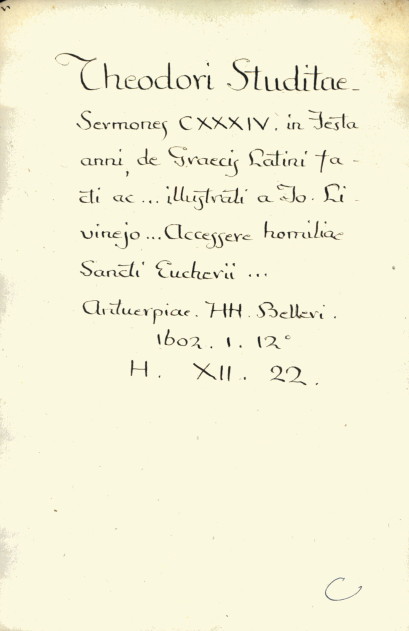 Theodori Studitae_
Sermones CXXXIV. in Festa
anni, de Graecis Latini fa-
cti ac... illustrati a Jo. Li-
vinejo... Accessere homiliae
Sancti Eucherii ...
Antuerpiae. HH. Belleri.
1602. 1. 12°
H. XII. 22.
C